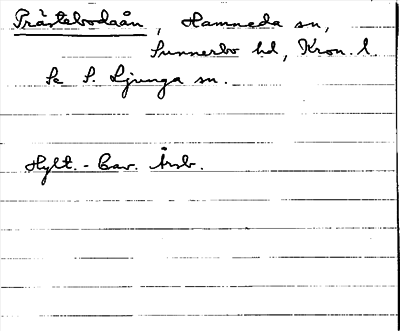 Prästebodaån, Hamneda sn,
Sunnerbo hd, Kron. l.
Se S. Ljunga sn.
Hylt.-Cav. Årsb.